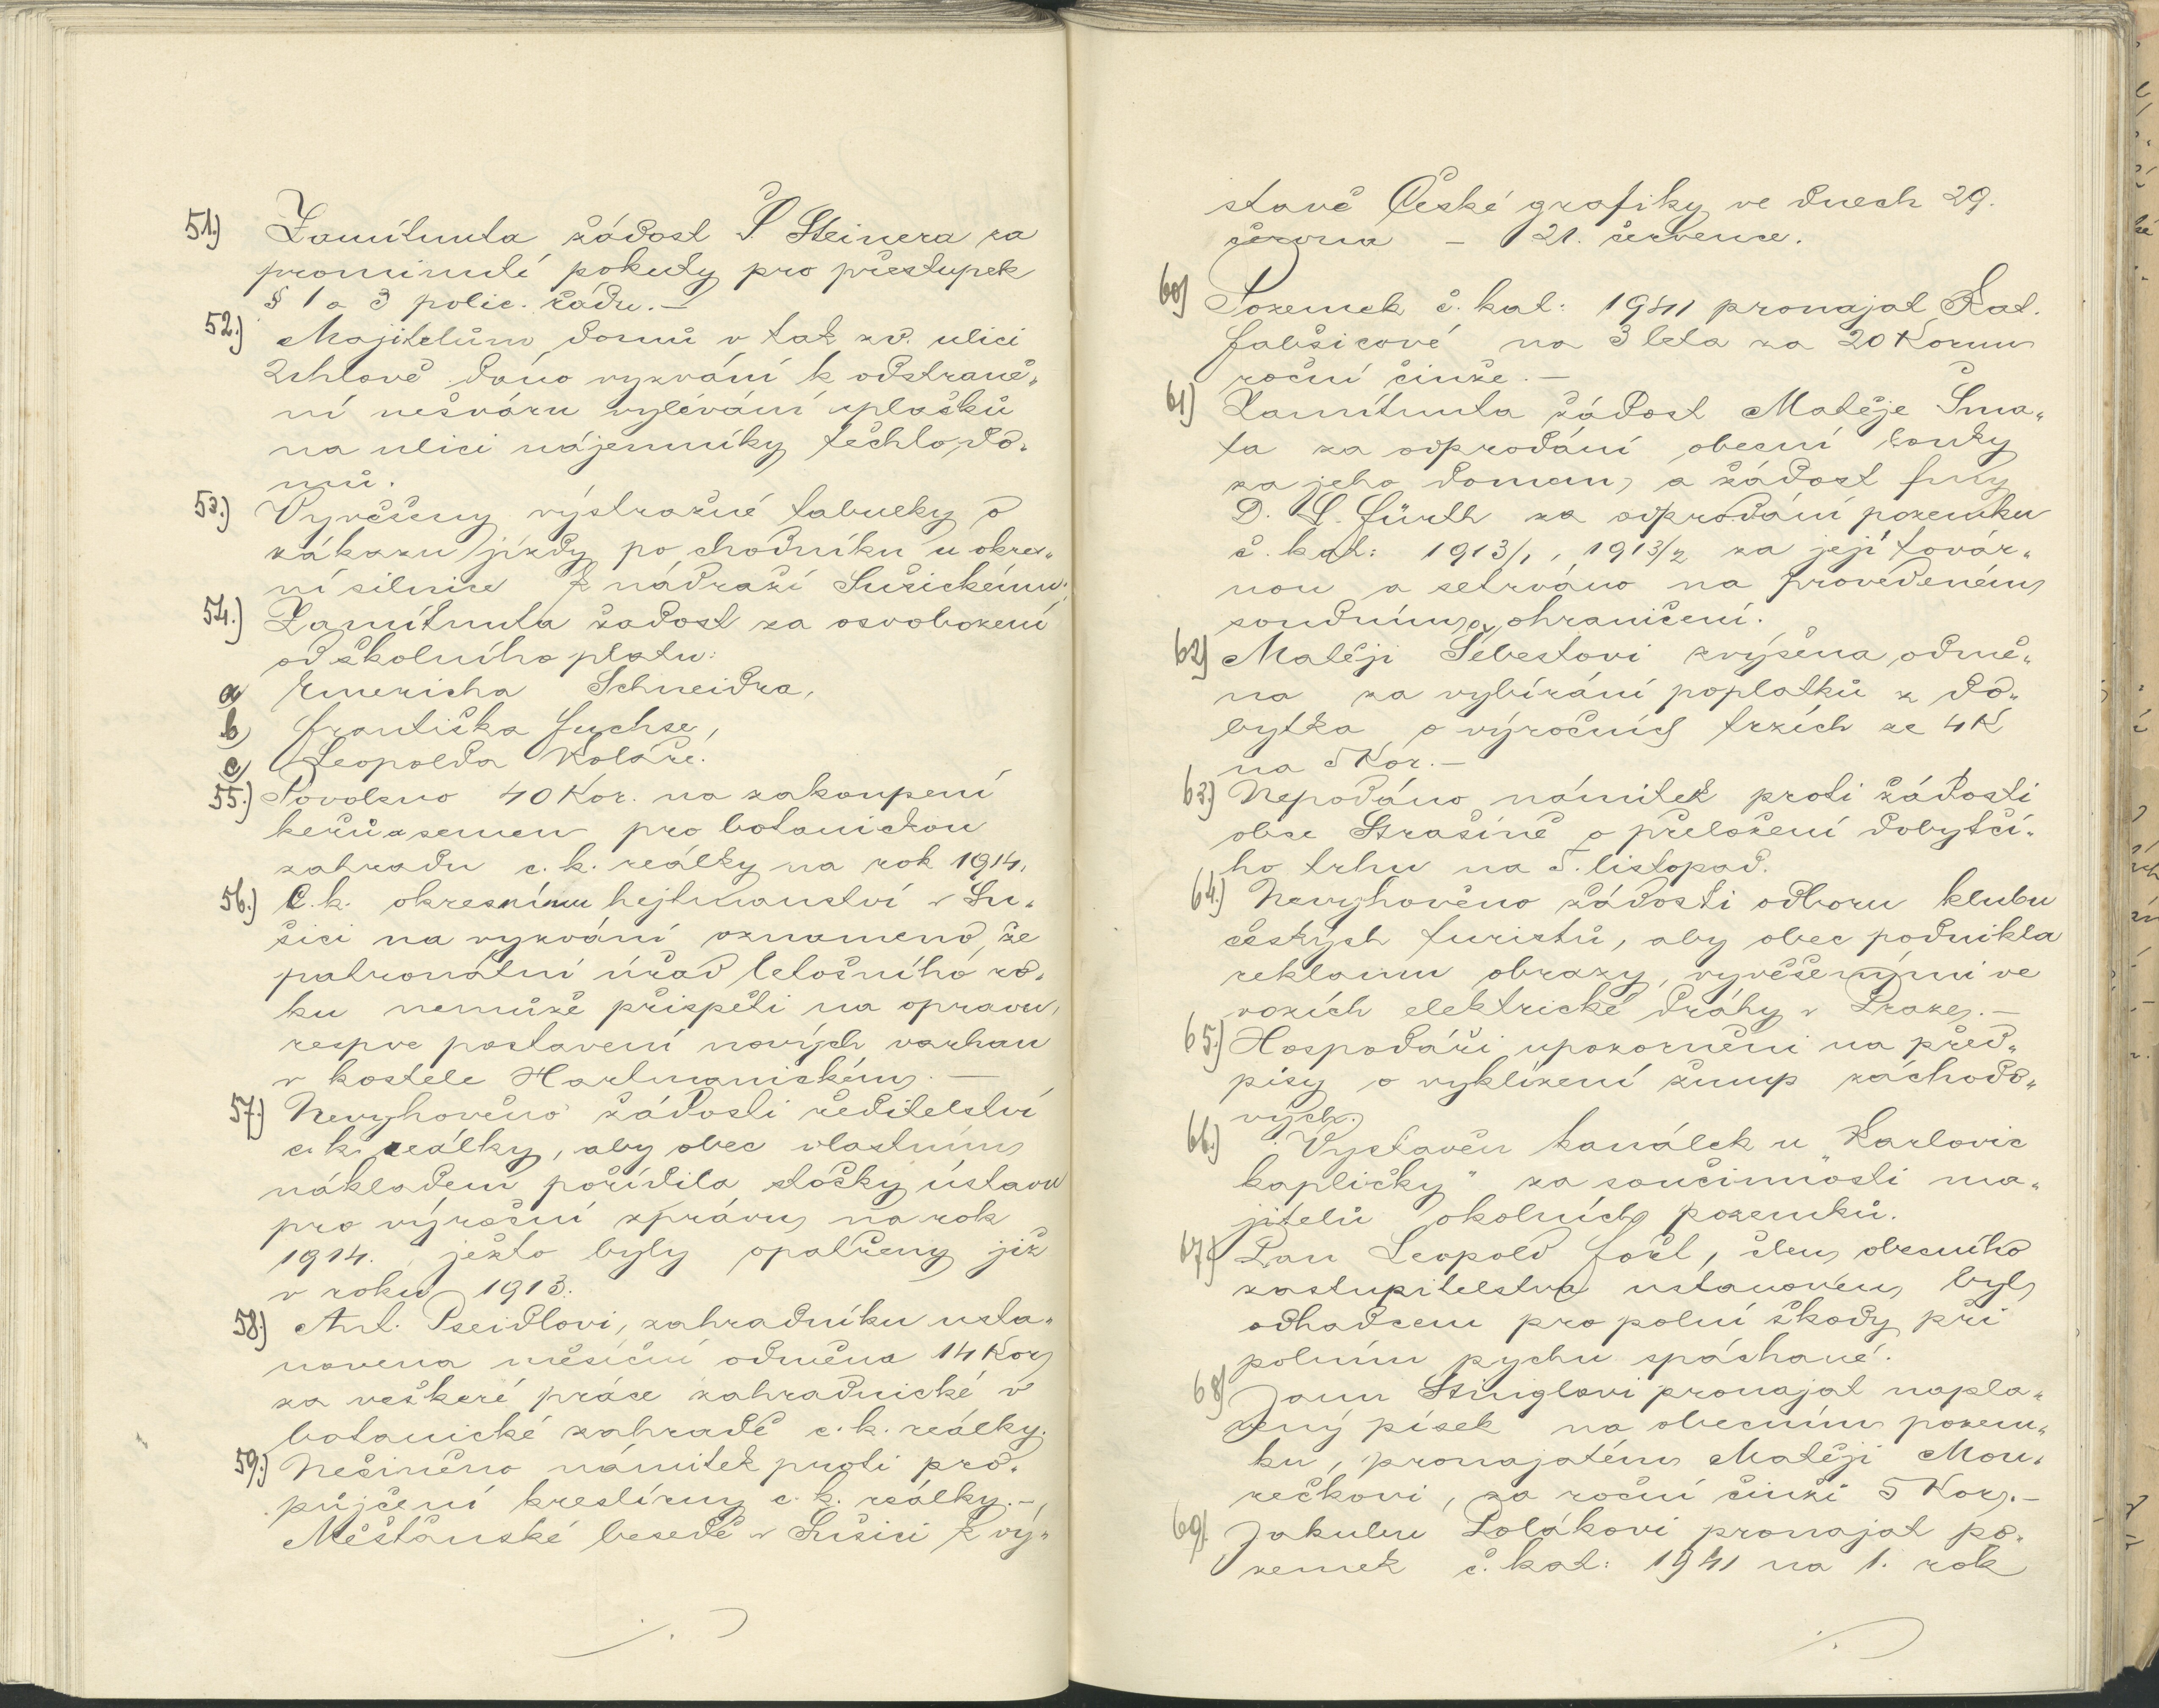 51.) Zamítnuta žádost Š. Steinera za
prominutí pokuty pro přestupek
§ 1 a 3 polic. řádu. —
52.) Majitelům domů v tak zv. ulici
Uhlově dáno vyzvání k odstraně„
ní nešváru vylévání splašků
na ulici nájemníky těchto do„
mů.
53.) Vyvěšeny výstražné tabulky o
zákazu jízdy po chodníku u okres„
ní silnice k nádraží Sušickému.
54.) Zamítnuta žádost za osvobození
od školního platu:
a) Emericha Schneidra,
b) Františka Fuchse,
c) Leopolda Koláře.
55.) Povoleno 40 Kor. na zakoupení
keřů a semen pro botanickou
zahradu c. k. reálky na rok 1914.
56.) C. k. okresnímu hejtmanství v Su„
šici na vyzvání oznámeno, že
patronátní úřad letošního ro„
ku nemůže přispěti na opravu,
respve postavení nových varhan
v kostele Hartmanickém. —
57.) Nevyhověno žádosti ředitelství
c. k. reálky, aby obec vlastním
nákladem pořídila štočky ústavu
pro výroční zprávu na rok
1914. ježto byly opatřeny již
v roku 1913.
58.) Ant. Pseidlovi, zahradníku usta„
novena měsíční odměna 14 Kor
za veškeré práce zahradnické v
botanické zahradě c. k. reálky.
59.) Nečiněno námitek proti pro„
půjčení kreslírny c. k. reálky. —
Měšťanské besedě v Sušici k vý„
stavě České grafiky ve dnech 29.
června — 21. července.
60) Pozemek č. kat: 1941 pronajat Kat.
Fabšicové na 3 leta za 20 Korun
roční činže. —
61) Zamítnuta žádost Matěje Šma„
ta za odprodání obecní louky
za jeho domem, a žádost fmy
D. L. Fürth za odprodání pozemku
č. kat: 1913/1, 1913/2 za její továr„
nou a setrváno na provedeném
soudním ohraničení.
62) Matěji Šebestovi zvýšena odmě„
na za vybírání poplatků z do„
bytka o výročních trzích ze 4 K
na 5 Kor. —
63.) Nepodáno námitek proti žádosti
obce Strašíně o přeložení dobytčí„
ho trhu na 5. listopad.
64.) Nevyhověno žádosti odboru klubu
českých turistů, aby obec podnikla
reklamu obrazy, vyvěšenými ve
vozích elektrické dráhy v Praze. —
65.) Hospodáři upozorněni na před„
pisy o vyklízení žump záchodo„
vých.
66.) Vystavěn kanálek u „Karlovic
kapličky" za součinnosti ma„
jitelů okolních pozemků.
67.) Pan Leopold Foršt, člen obecního
zastupitelstva ustanoven byl
odhadcem pro polní škody při
polním pychu spáchané.
68) Janu Stinglovi pronajat napla„
vený písek na obecním pozem„
ku, pronajatém Matěji Mou„
rečkovi, za roční činži 5 Kor. —
69. Jakubu Polákovi pronajat po„
zemek č. kat: 1941 na 1. rok